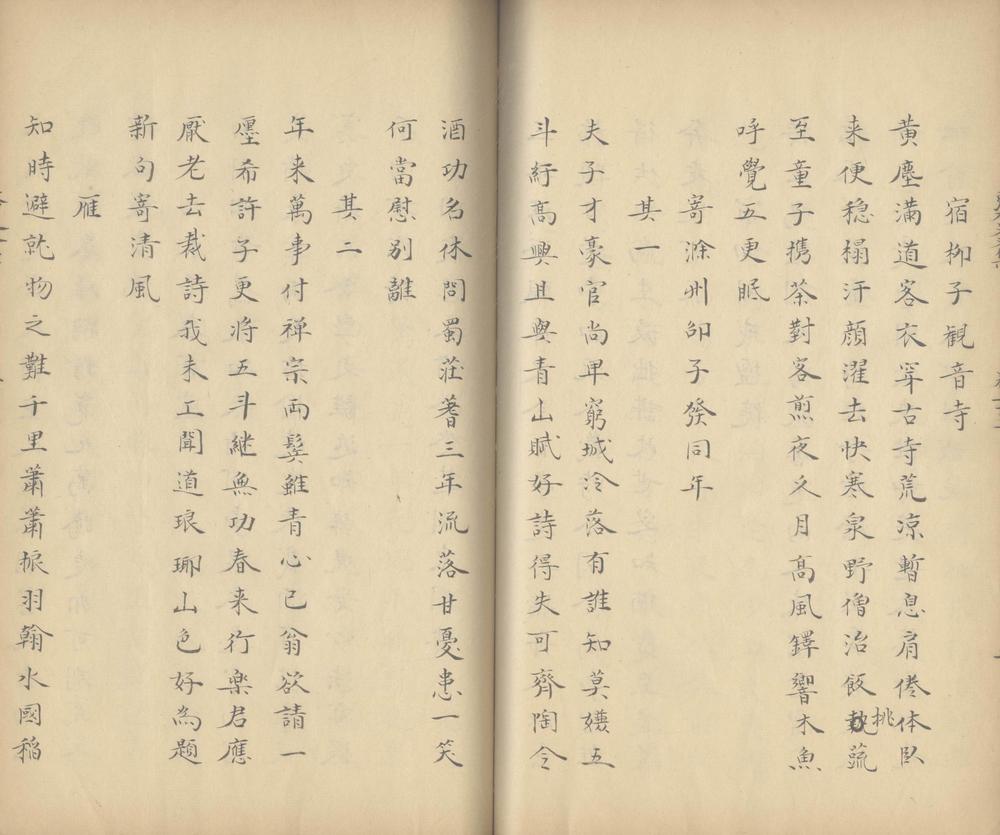 宿柳子観音寺
黄塵滿道客衣穿古寺荒凉暫息肩倦体臥
来便穏榻汗顔濯去快寒泉野僧治飯蔬
挑
至童子携茶對客煎夜久月高風鐸響木魚
呼覺五更眠
寄滁州邵子發同年
其一
夫子才豪官尚卑窮城冷落有誰知莫嫌五
斗紆高興且與青山賦好詩得失可齊陶令
酒功名休問蜀荘蓍三年流落甘憂患一笑
何當慰別離
其二
年来萬事付禅宗両鬢雖青心已翁欲請一
廛希許子更将五斗継無功春来行楽君應
厭老去裁詩我未工聞道琅琊山色好為題
新句寄清風
雁
知時避就物之難千里蕭蕭振羽翰水國稲